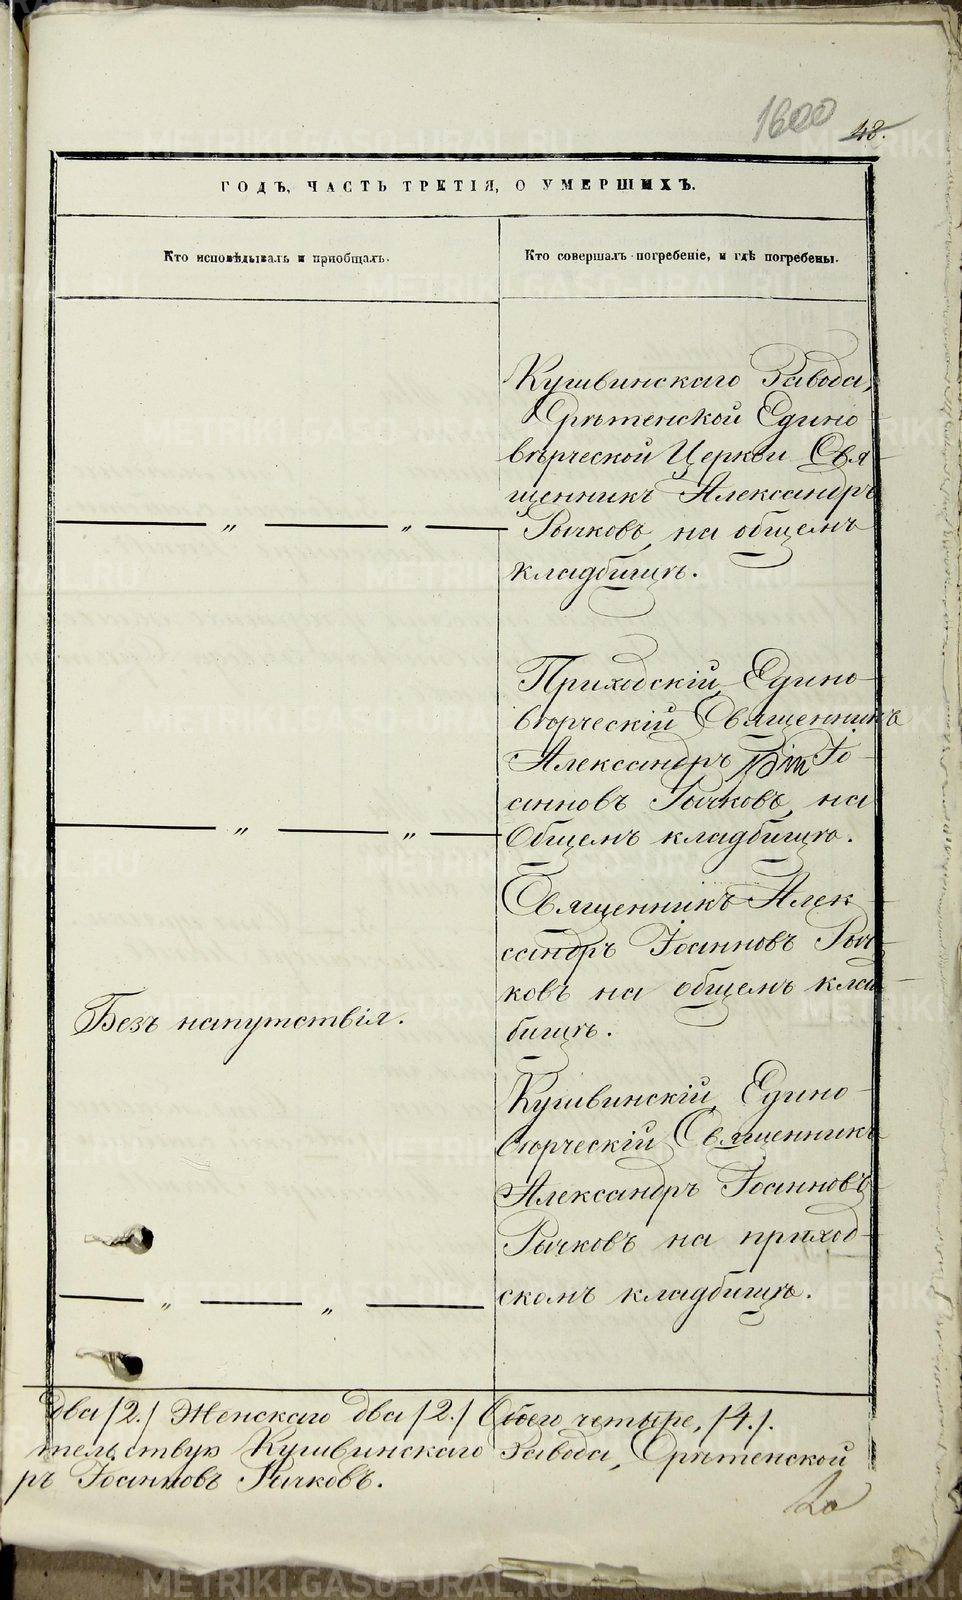 1600 48.
ГОДЪ, ЧАСТЬ ТРЕТІЯ, О УМЕРШИХЪ.
Кто исповѣдывалъ и пріобщалъ.
Кто совершалъ погребеніе, и гдѣ погребены.
Кушвинскаго Завода,
Срѣтенской Едино
вѣрческой Церкви Свя
щенникъ Александръ
Рычковъ, на общемъ
кладбищѣ.
„ „
Приходскій Едино
вѣрческій Священникъ
Александръ Іо
анновъ Рычковъ, на
Общемъ кладбищѣ.
„ „
Священникъ Алек
сандръ Іоанновъ Рыч
ковъ на общемъ клад
бищѣ.
Безъ напутствія.
Кушвинскій Едино
вѣрческій Священникъ
Александръ Іоанновъ
Рычковъ на приход
скомъ кладбищѣ.
„ „
два /2./ Женскаго два /2./ Всего четыре, /4./.
тельствую Кушвинскаго Завода, Срѣтенской
ръ Іоанновъ Рычковъ.
METRIKI.GASO-URAL.RU